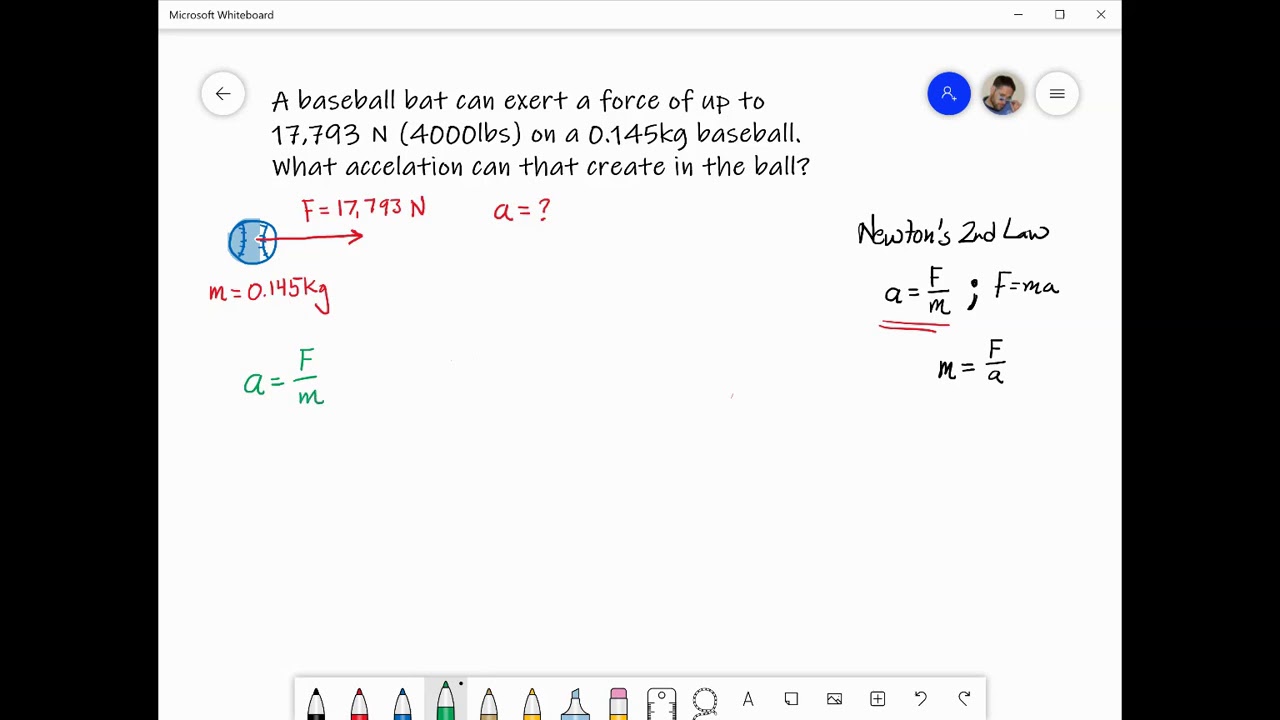 Microsoft Whiteboard
A baseball bat can exert a force of up to
17,793 N (4000lbs) on a 0.145kg baseball.
What accelation can that create in the ball?
F=17,793 N
a=?
m=0.145kg
Newton's 2nd Law
a=F/m ; F=ma
m=F/a
a=F/m
A